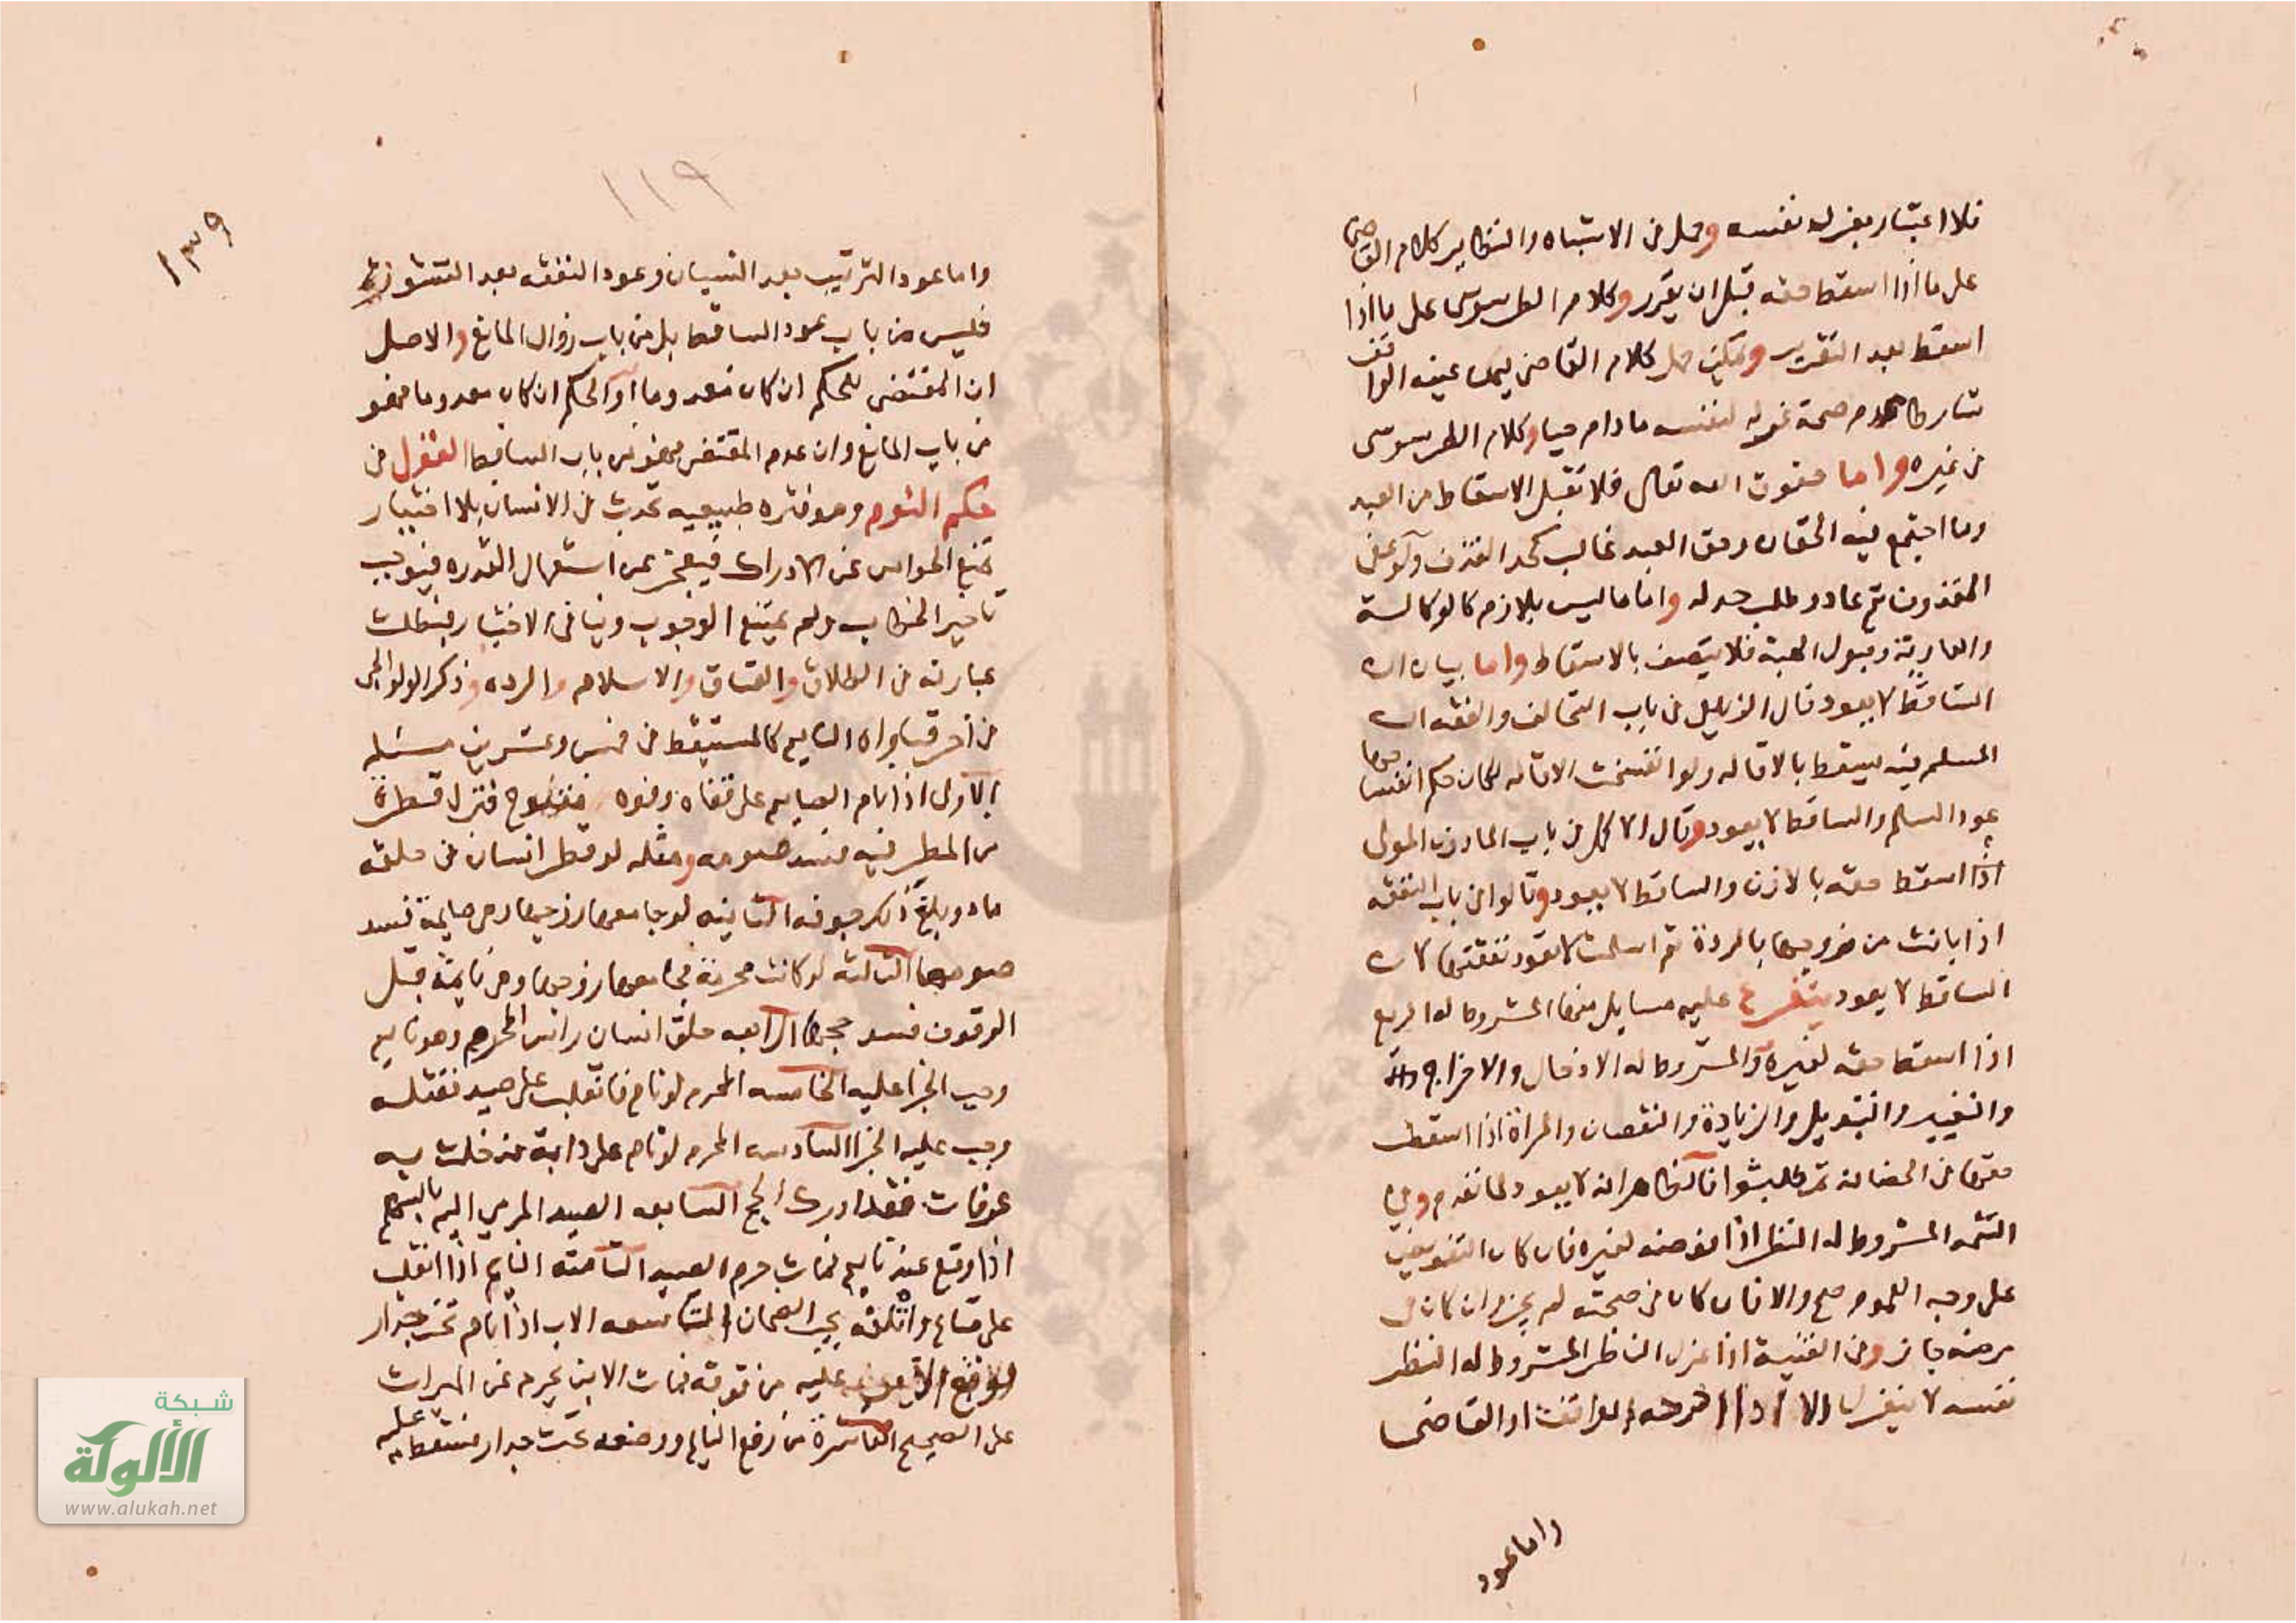 فلا اعتبار بعزله نفسه وحمل في الاشباه والنظاير كلام القاضي
على ما اذا اسقط حقه قبل ان يقرر وكلام الطرسوسي على ما اذا
اسقط بعد التقرير ويمكن حمل كلام القاضي يمن عينه الواقف
شارطا عدم صحة عزله لنفسه ما دام حيا وكلام الطرسوسي
في غيره واما حقوق الله تعالى فلا تقبل الاسقاط من العبد
وما اجتمع فيه الحقان وحق العبد غالب كحد القذف ولو عفى
المقذوف ثم عاد وطلب حد له واما ما ليس بلازم كالوكالة
والعارية وقبول الهبة فلا يتصف بالاسقاط واما بيان ان
الساقط لا يعود قال الزيلعي في باب التحالف والفقه ان
المسلم فيه سقط بالاقاله ولو انفسخت الاقاله لكان حكم انفساخها
عود السلم والساقط لا يعود وقال الاكمل في باب الماذون المولى
اذا اسقط حقه بالاذن والساقط لا يعود وقالوا في باب النفقه
اذا بانت من زوجها بالردة ثم اسلمت لا تعود نفقتها لان
الساقط لا يعود يتفرع عليه مسايل منها المشروط له الريع
اذا اسقط حقه لغيره والمشروط له الادخال والاخراج
والتغيير والتبديل والزيادة والنقصان والمراة اذا اسقطت
حقها في الحضانة ثم طلبتها فالظاهر انه لا يعود لما تقدم وفي
التتمه المشروط له النظر اذا فوضه لغيره فان كان التفويض
على وجه العموم صح والا فان كان في صحته لم يجز وان كان في
مرضه جاز وفي القنية اذا عزل الناظر المشروط له النظر
نفسه لا ينعزل الا اذا اخرجه الواقف او القاضي
واما عود
١١٩
١٣٩
واما عود الترتيب بعد النسيان وعود النفقه بعد النشوز
فليس من باب عود الساقط بل من باب زوال المانع والاصل
ان المقتضى للحكم ان كان معدوما او الحكم ان كان معدوما فهو
من باب المانع وان عدم المقتضى فهو من باب الساقط القول في
حكم النوم وهو فتره طبيعيه تحدث في الانسان بلا اختيار
تمنع الحواس عن الادراك فيعجز عن استعمال القدره فيوجب
تاخير الخطاب ولم يمتنع الوجوب وينافي الاختيار فبطلت
عبارته في الطلاق والعتاق والاسلام والردة وذكر الولوالجي
في اخر فتاواه النايم كالمستيقظ في خمس وعشرين مسئله
الاولى اذا نام الصايم على قفاه وفوه مفتوح فنزل قطرة
من المطر فيه فسد صومه ومثله لو قطر انسان في حلقه
ماء وبلغ ذلك جوفه الثانيه لو جامعها زوجها وهي صايمة فسد
صومها الثالثه لو كانت محرمة فجامعها زوجها وهي نايمة قبل
الوقوف فسد حجها الرابعه حلق انسان راس المحرم وهو نايم
وجب الجزا عليه الخامسه المحرم لو نام فانقلب على صيد فقتله
وجب عليه الجزا السادسه المحرم لو نام على دابة فدخلت به
عرفات فقد ادرك الحج السابعه الصيد المرمي اليه بالسهم
اذا وقع عند نايم فمات حرم الصيد الثامنه النايم اذا انقلب
على متاع واتلفه يجب الضمان التاسعه الاب اذا نام تحت جدار
فوقع الابن عليه من فوقه فمات الابن يحرم عن الميراث
على الصحيح العاشرة من رفع النايم ووضعه تحت جدار فسقط عليه
شبكة
الألوكة
www.alukah.net